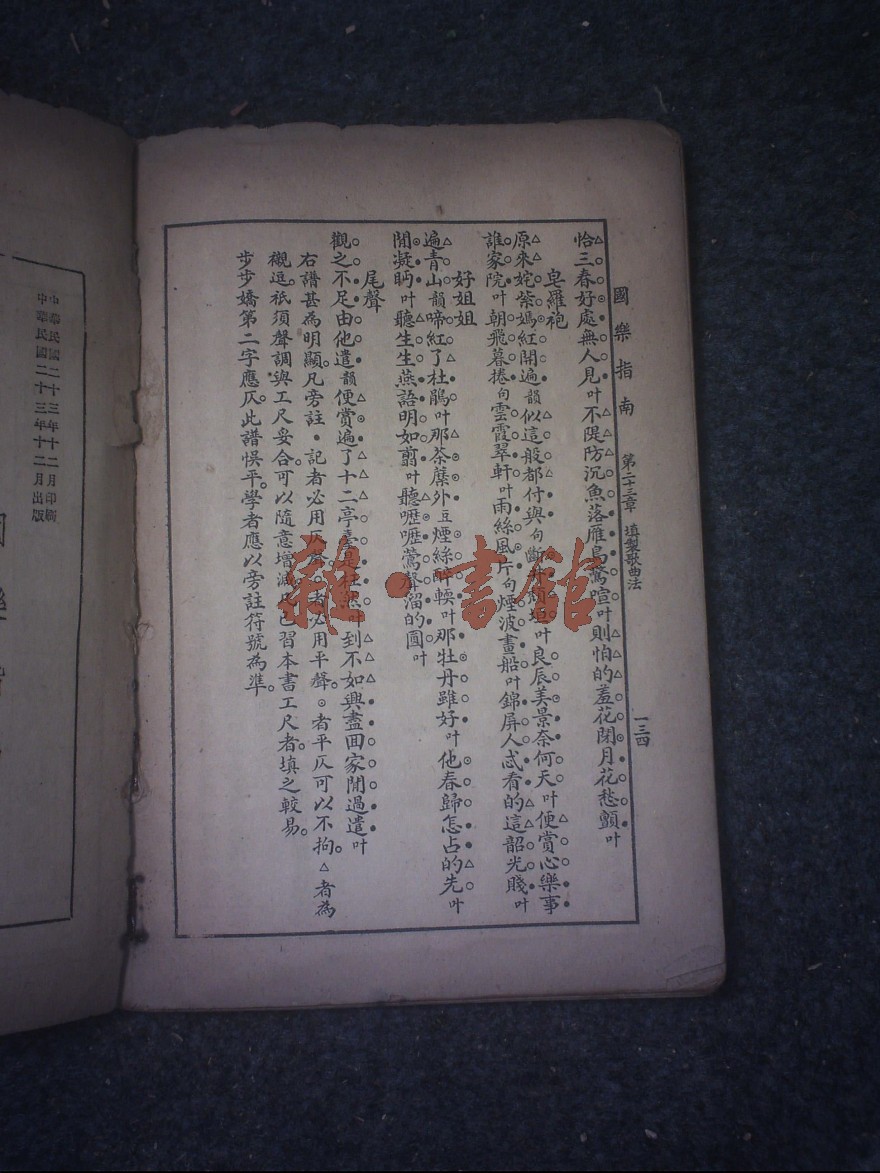 國樂指南 第二十三章 填製歌曲法 一三四
恰三春好處無人見叶不隄防沉魚落雁鳥驚喧叶則怕的羞花閉月花愁顫叶
皂羅袍
原來姹紫嫣紅開遍韻似這般都付與句斷井頹垣叶良辰美景奈何天叶便賞心樂事
誰家院叶朝飛暮捲句雲霞翠軒叶雨絲風片句煙波畫船叶錦屏人忒看的這韶光賤叶
好姐姐
遍青山韻啼紅了杜鵑叶那荼蘼外豆煙絲醉輭叶那牡丹雖好叶他春歸怎占的先叶
閒凝眄叶聽生生燕語明如翦叶聽嚦嚦鶯聲溜的圓叶
尾聲
觀之不足由他遣韻便賞遍了十二亭臺是枉然叶到不如興盡囬家閒過遣叶
右譜甚為明顯。凡旁註•記者必用仄聲。○者必用平聲。⊙者平仄可以不拘。△者為
襯逗。祇須聲調與工尺妥合。可以隨意增減。凡已習本書工尺者。填之較易。
步步嬌第二字應仄。此譜悮平。學者應以旁註符號為準。
中華民國二十三年十二月印刷
中華民國二十三年十二月出版
雜·書館